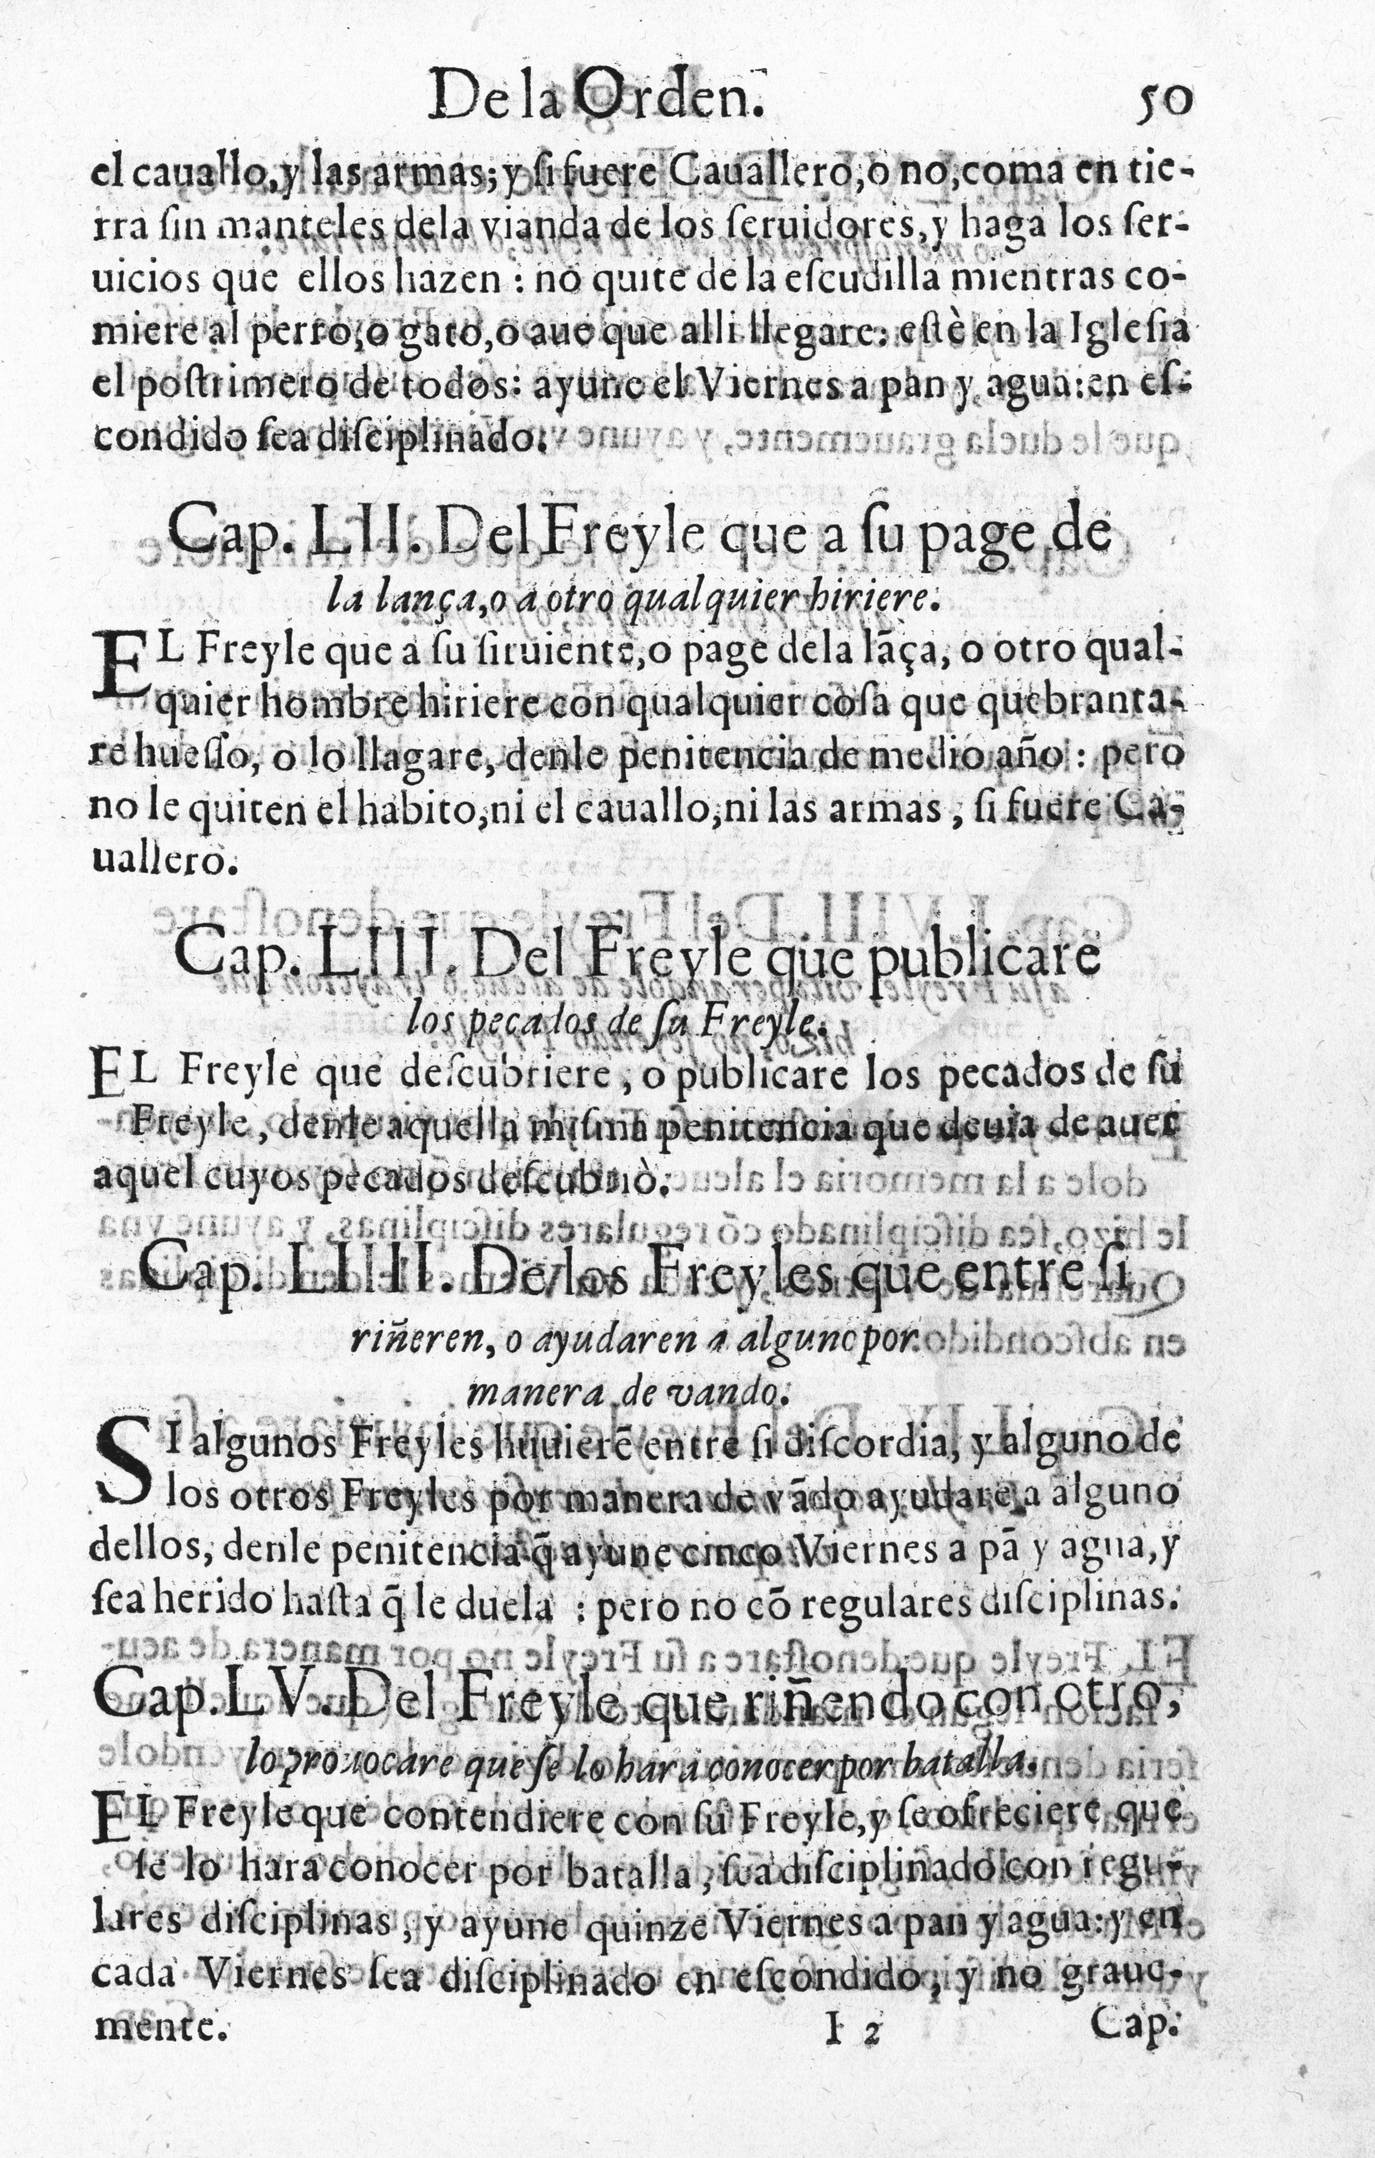 De la Orden. 50
el cauallo,y las armas; y ſi fuere Cauallero,o no,coma en tie-
rra ſin manteles dela vianda de los ſeruidores,y haga los ſer-
uicios que ellos hazen : no quite de la eſcudilla mientras co-
miere al perro,o gato,o aue que alli llegare: eſtè en la Igleſia
el poſtrimero de todos: ayune el Viernes a pan y agua:en eſ-
condido ſea diſciplinado.
Cap. LII. Del Freyle que a ſu page de
la lança,o a otro qualquier hiriere.
EL Freyle que a ſu ſiruiente,o page dela lãça, o otro qual-
quier hombre hiriere con qualquier coſa que quebranta-
re hueſſo, o lo llagare, denle penitencia de medio año : pero
no le quiten el habito,ni el cauallo,ni las armas , ſi fuere Ca-
uallero.
Cap. LIII. Del Freyle que publicare
los pecados de ſu Freyle.
EL Freyle que deſcubriere , o publicare los pecados de ſu
Freyle , denle aquella miſma penitencia que deuia de auer
aquel cuyos pecados deſcubriò.
Cap. LIIII. De los Freyles que entre ſi
riñeren, o ayudaren a alguno por
manera de vando.
SI algunos Freyles huuierẽ entre ſi diſcordia, y alguno de
los otros Freyles por manera de vãdo ayudare a alguno
dellos, denle penitencia q̃ ayune cinco Viernes a pã y agua,y
ſea herido haſta q̃ le duela : pero no cõ regulares diſciplinas.
Cap. LV. Del Freyle que riñendo con otro,
lo prouocare que ſe lo hara conocer por batalla.
EL Freyle que contendiere con ſu Freyle,y ſe ofreciere que
ſe lo hara conocer por batalla , ſea diſciplinado con regu-
lares diſciplinas , y ayune quinze Viernes a pan y agua: y en
cada Viernes ſea diſciplinado en eſcondido, y no graue-
mente. I 2 Cap.